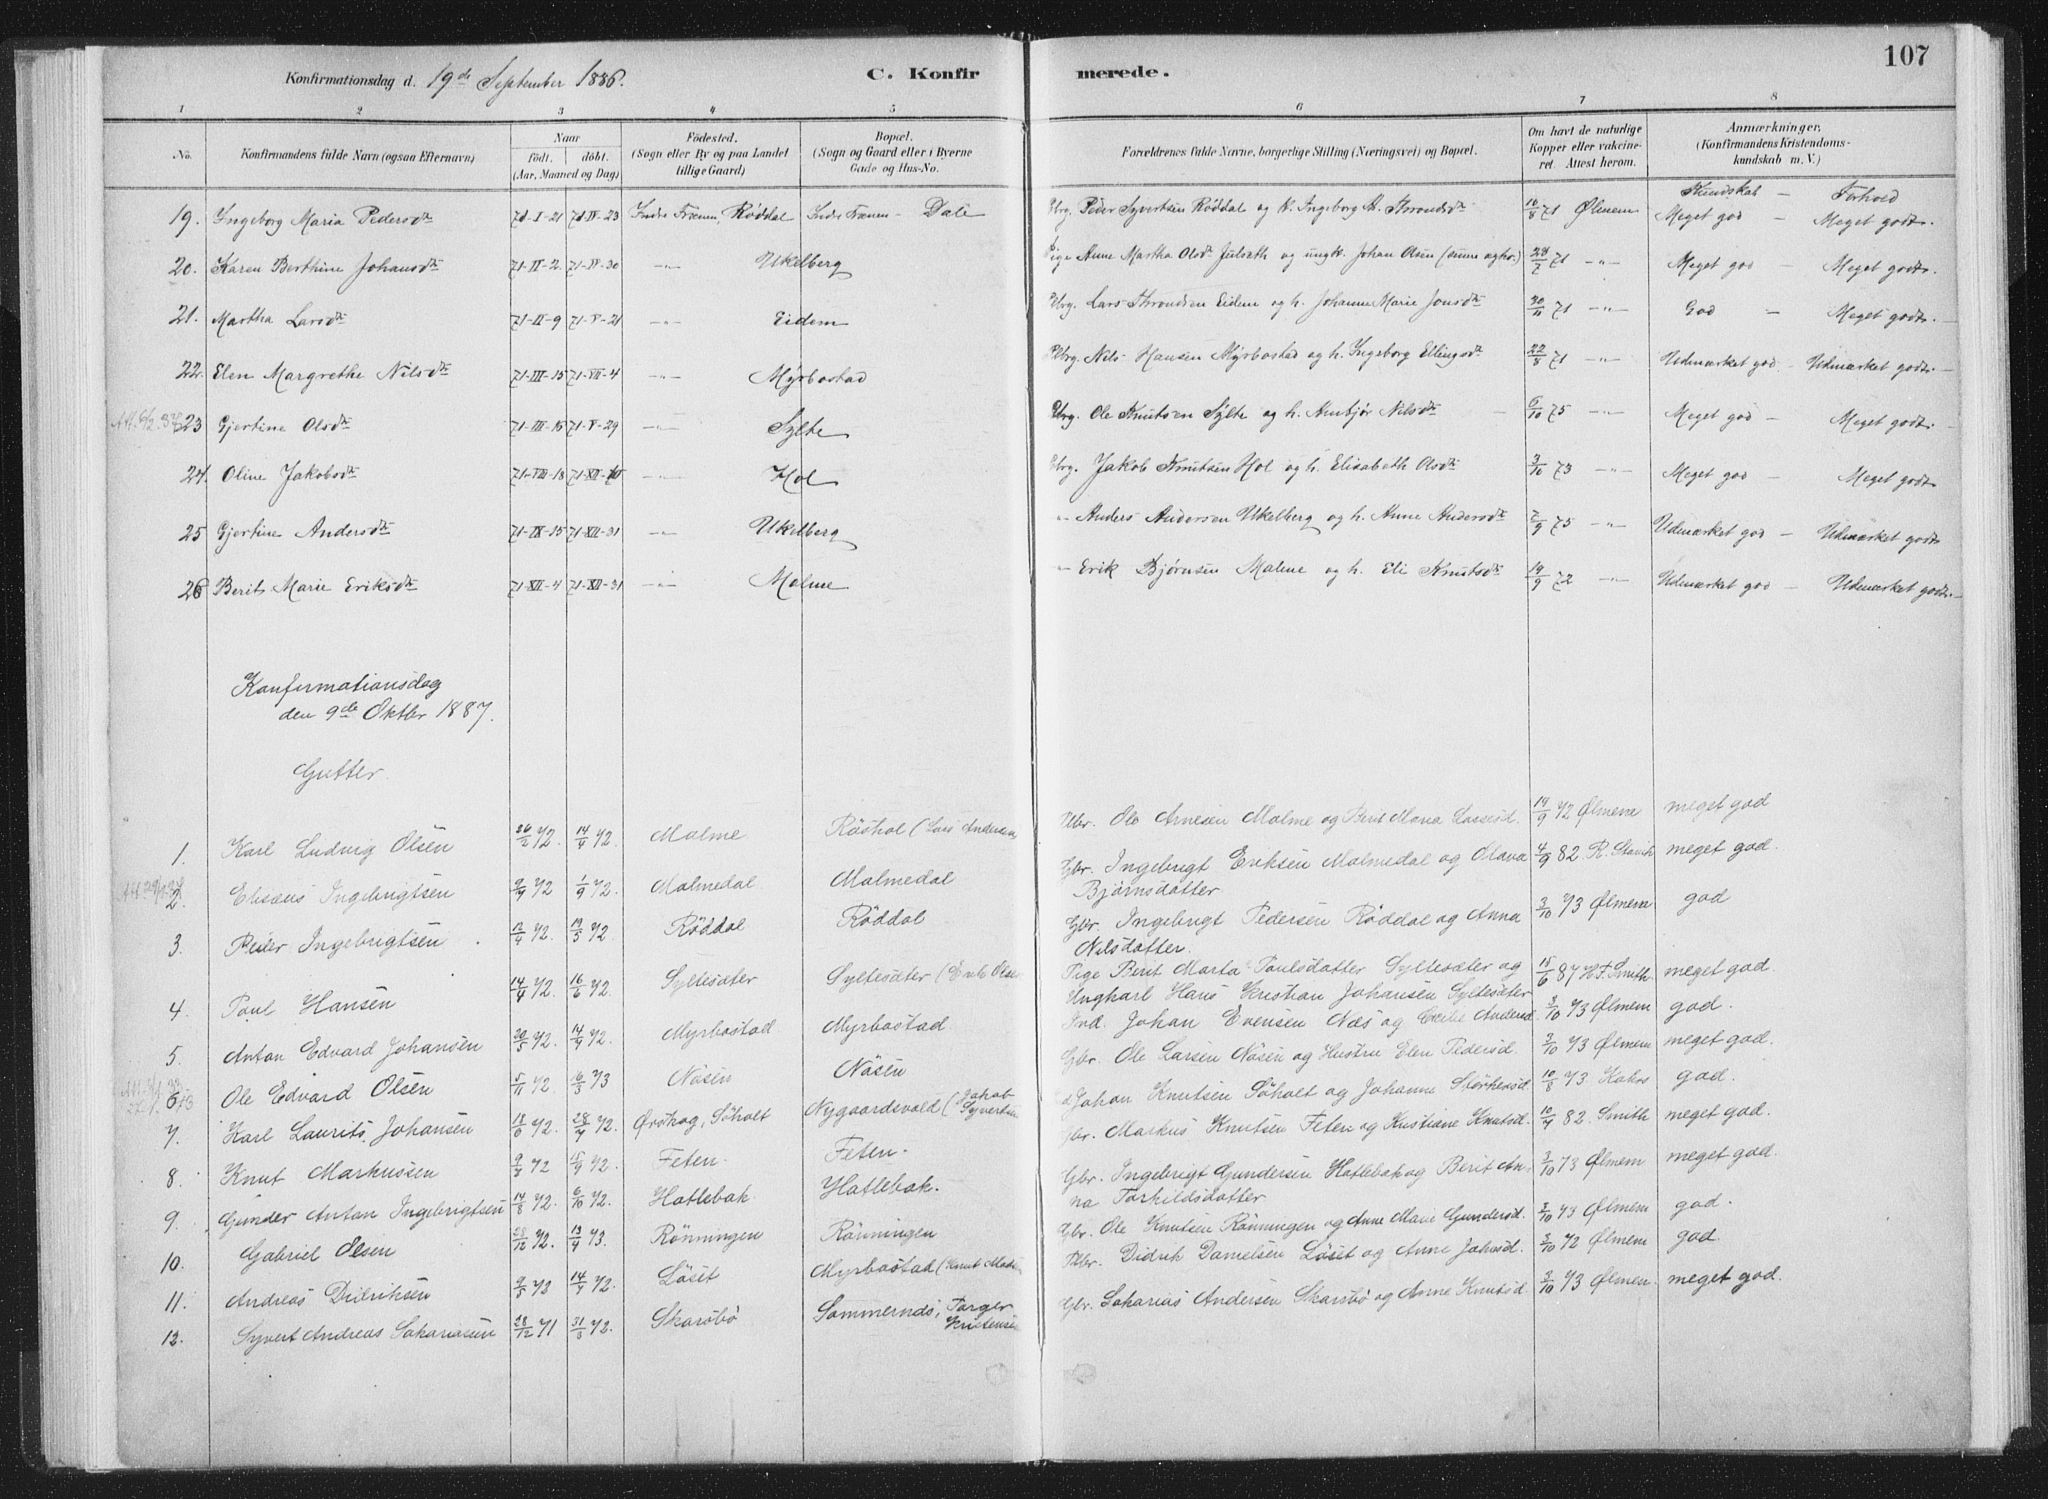 107
Konfirmationsdag d. 19de September 1886. C. Konfirmerede.
1 2 3 4 5 6 7 8
No. Konfirmandens fulde Navn (ogsaa Efternavn) Naar født. døbt. (Aar, Maaned og Dag) Fødested. (Sogn eller By og paa Landet tillige Gaard) Bopæl. (Sogn og Gaard eller i Byerne Gade og Hus-No. Forældrenes fulde Navne, borgerlige Stilling (Næringsvei) og Bopæl. Om havt de naturlige Kopper eller vakcineret. Attest herom. Anmærkninger, (Konfirmandens Kristendomskundskab m. V.)
Kundskab - Forhold
19. Ingeborg Maria Pedersdtr 71-I-21 71-IV-23 Indre Frænen, Røddal Indre Frænen - Dale Gbrg. Peder Syvertsen Røddal og h. Ingeborg A. Throndsdtr 10/8 71 Ølmem Meget god - Meget godt.
20. Karen Berthine Johansdtr 71-II-2 71-IV-30 -"- Ukelberg Pige Anne Martha Olsdtr Julseth og ungk. Johan Olsen 28/7 71 -"- Meget god - Meget godt.
21. Martha Larsdtr 71-II-9 71-V-21 -"- Eidem Gbrg. Lars Throndsen Eidem og h. Johanne Marie Jonsdtr 71 -"- God - Meget godt.
22. Elen Margrethe Nilsdtr 71-III-15 71-VII-4 -"- Myrbostad Gbrg. Nils Hansen Myrbostad og h. Ingeborg Ellingsdtr 22/8 71 -"- Udmærket god - Udmærket godt.
23 Gjertine Olsdtr 71-III-15 71-V-29 -"- Sylte Gbrg. Ole Knutsen Sylte og h. Nilsdtr 6/10 75 -"- Meget god - Meget godt.
24. Oline Jakobsdtr 71-VIII-18 -"- Hol Gbrg. Jakob Knutsen Hol og h. Elisabeth Olsdtr 3/10 73 -"- Meget god - Meget godt
25 Gjertine Andersdtr 71-IX-15 71-XII-31 -"- Ukelberg -"- Anders Andersen Ukelberg og h. Anne Andersdtr 7/9 75 -"- Udmærket god - Udmærket godt
26 Berit Marie Eriksdtr 71-XII-4 71-XII-31 -"- Malme -"- Erik Bjørnsen Malme og h. Eli Knutsdtr 19/9 72 -"- Udmærket god - Udmærket godt.
Konfirmationsdag
den 9de Oktbr 1887.
Gutter.
1. Karl Ludvig Olsen 26/2 72. 14/4 72. Malme Røshol (Lars Andersen Gbr. Ole Arnesen Malme og Berit Maria Larsesd. 19/9 72 Ølmem meget god
2. Elisæus Ingebrigtsen 1/9 72. Malmedal Malmedal Gbr. Ingebrigt Eriksen Malmedal og Olava 4/9 82. meget god.
Bjørnsdatter
3. Peder Ingebrigtsen 12/4 72. 19/5 72 Røddal Røddal Gbr. Ingebrigt Pedersen Røddal og Anna 3/10 73 Ølmem god
Nilsdatter.
4. Paul Hansen 14/4 72. 16/6 72. Syltesæter Syltesæter (Erik Olse Pige Berit Marta Paulsdatter Syltesæter og 15/6 87 H. F. Smith. meget god.
Ungkarl Hans Kristian Johansen Syltesæter
5. Anton Edvard Johansen 20/5 72. 14/9 72. Myrbostad Myrbostad Ind. Johan Evensen Næs og Andersd. 3/10 73 Ølmem god.
6. Ole Edvard Olsen 5/11 72 16/3 73 Nøsen Nøsen Gbr. Ole Larsen Nøsen og Hustru Elen Pedersd. 3/10 73 Ølmem meget god.
7. Karl Laurits Johansen 13/6 72. 28/7 72. Ørskog, Søholt Nygaardsvold (Jakob Syvertsen Johan Knutsen Søholt og Johanne 10/8 73 Kahrs god.
8. Knut Markussen 9/8 72 15/9 72. Feten. Feten. Gbr. Markus Knutsen Feten og Kristiane Knutsd. 10/7 82. Smith meget god.
9. Gunder Anton Ingebrigtsen 14/8 72. 6/10 72. Hatlebak. Hatlebak. Gbr. Ingebrigt Gundersen Hatlebak og Berit An- 3/10 73 Ølmem meget god.
na Torkildsdatter
10. Gabriel Olsen 28/12 72. 13/4 73. Rønningen Rønningen Gbr. Ole Knutsen Rønningen og Anne Marie Gundersd. 3/10 73 Ølmem god.
11. Andreas Didriksen 9/5 73 14/7 72. Løset Myrbostad (Knut Mads Didrik Danielsen Løset og Anne Johnsd. 3/10 72 Ølmem god.
12. Syvert Andreas Sakariasen 28/12 71 31/3 72. Skarsbø Sommernes, Torger Kristensen Gbr. Sakarias Andersen Skarsbø og Anne Knutsd. 3/10 73 Ølmen. meget god.